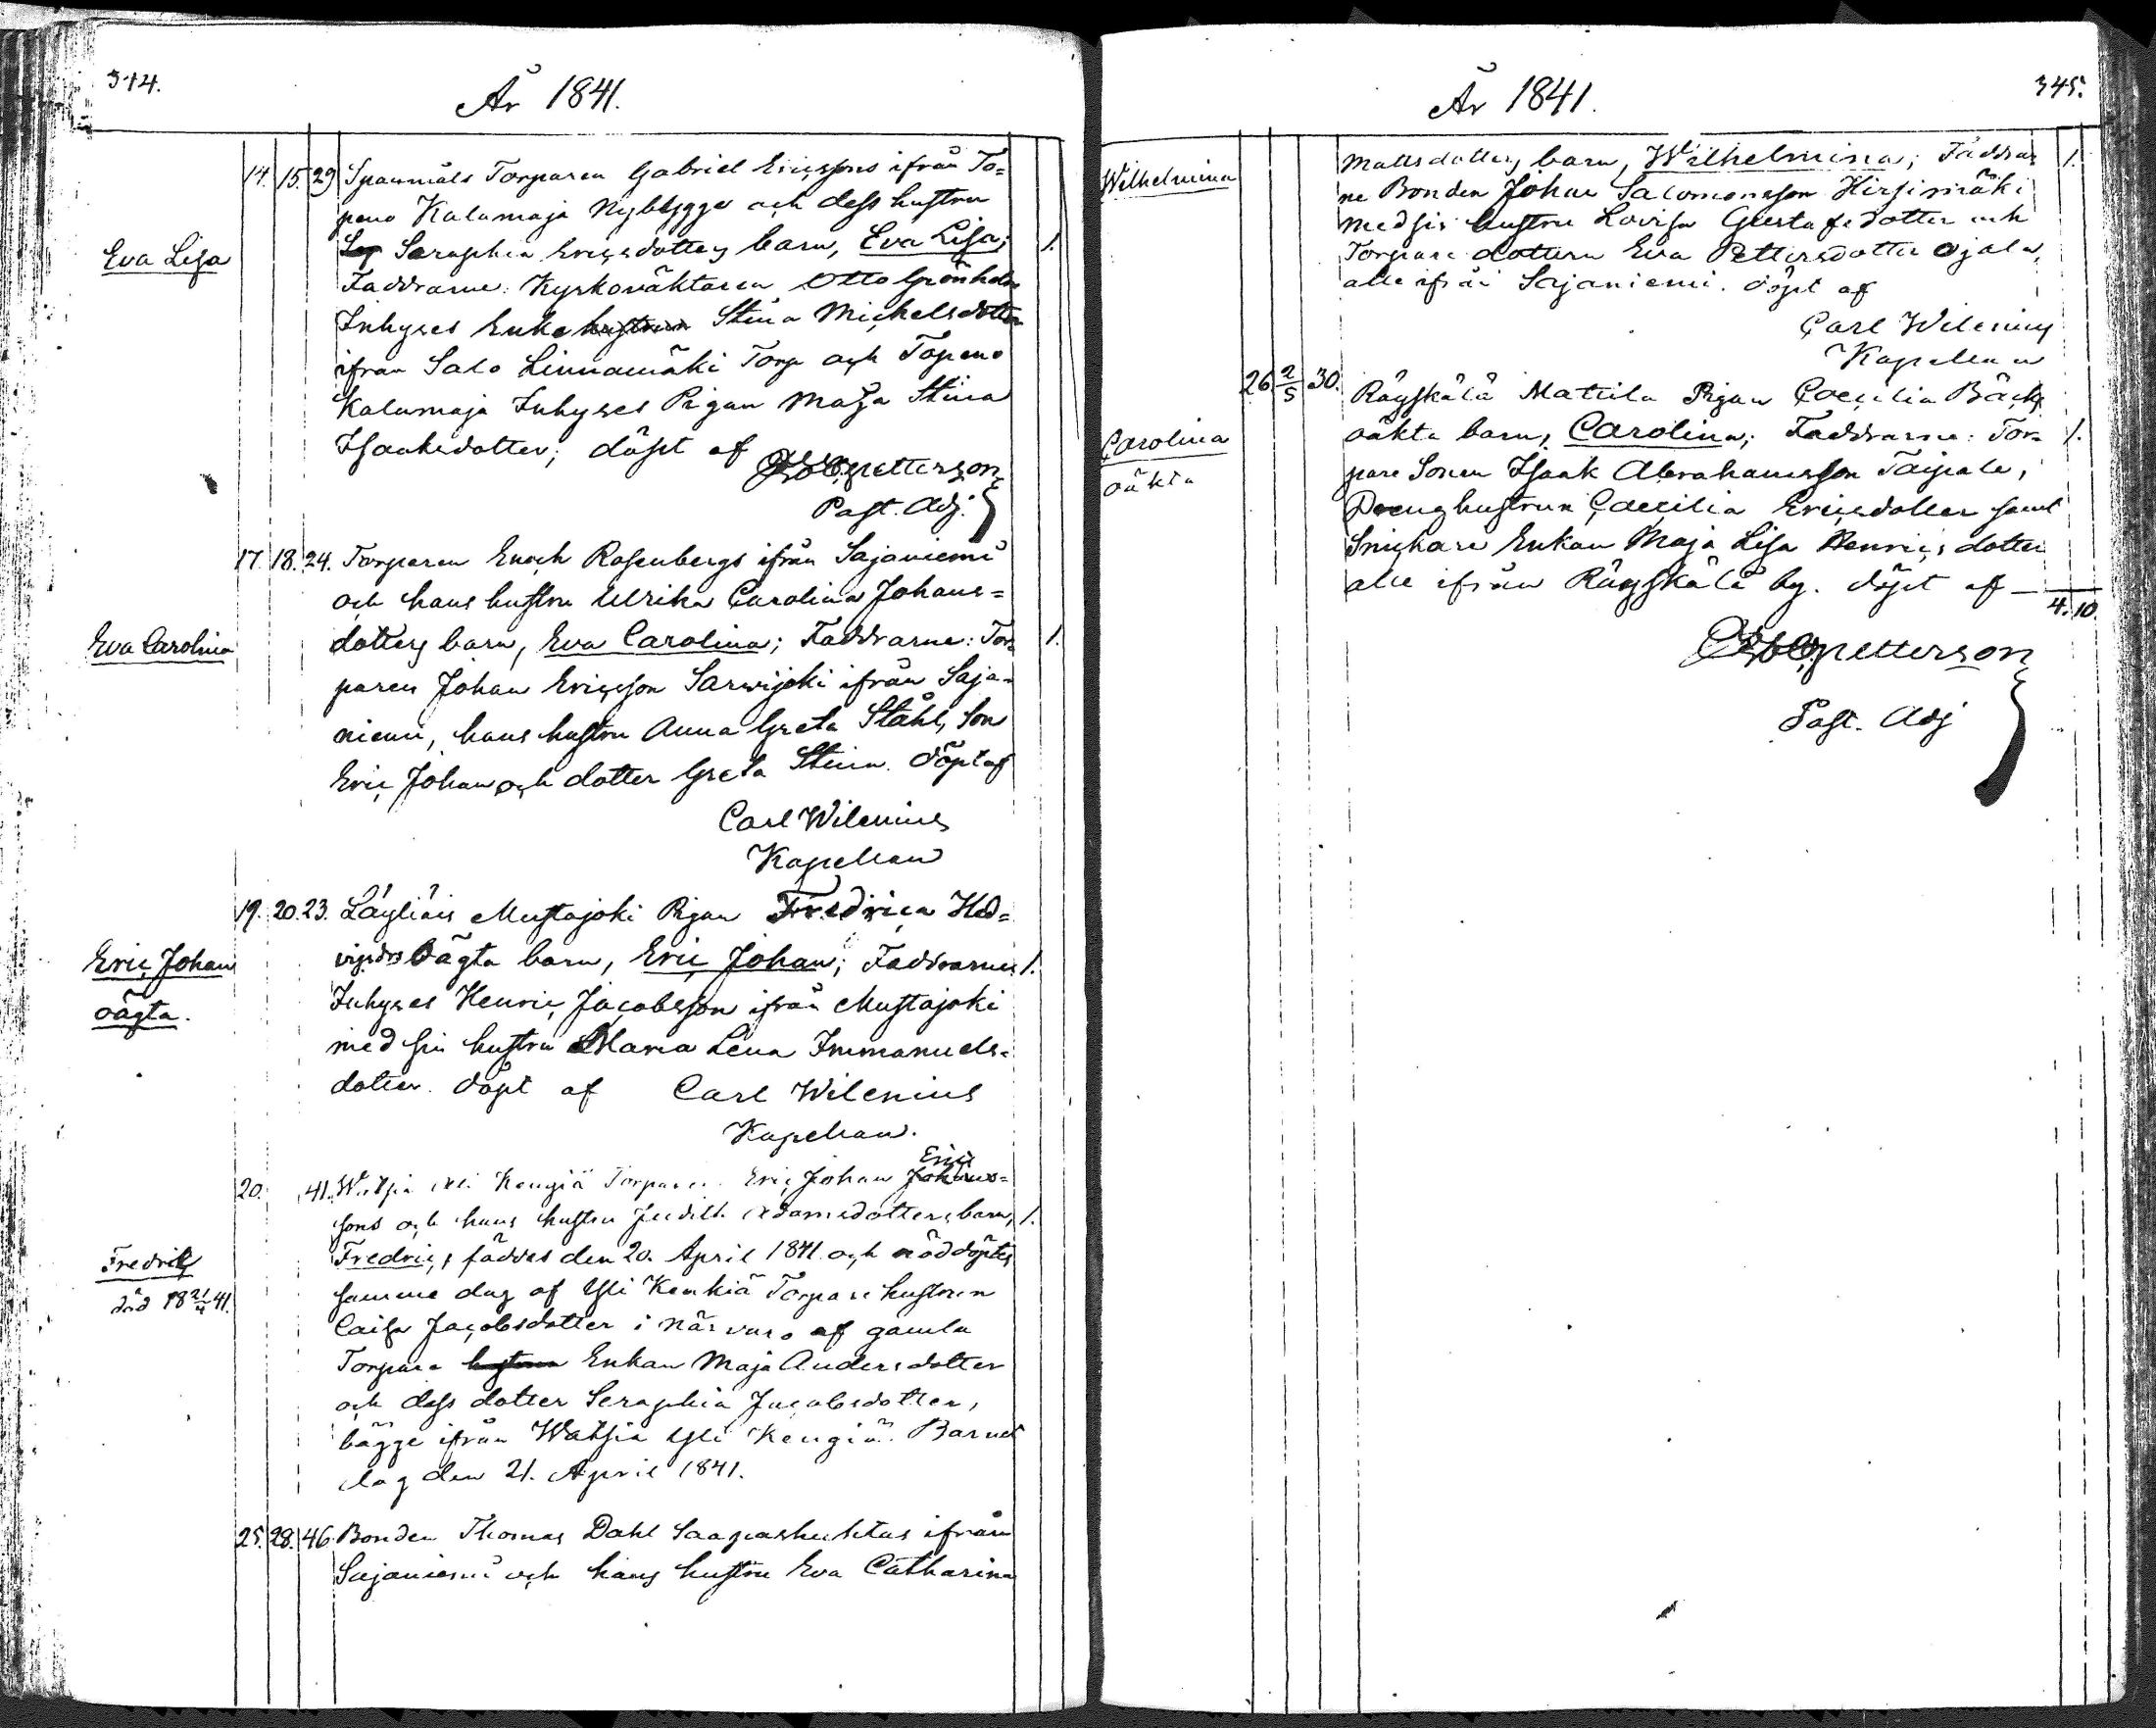 344.
År 1841.
14. 15. 29 Spannmåls Torparen Gabriel Ericssons ifrån To=
peno Kalamaja Nybygge och dess hustru
Seraphia Ericsdotters barn, Eva Lisa; 1.
Eva Lisa
Faddrarne: Kyrkoväktaren Otto Grönholm
Inhyses Enke hustrun Stina Michelsdotter
ifrån Salo Linnamäki Torp och Topeno
Kalamaja Inhyses Pigan Maja Stina
Isaaksdotter; döpt af
petterson
Past. Adj.
17. 18. 24. Torparen Enoch Rosenbergs ifrån Sajaniemi
och hans hustru Ulrika Carolina Johans=
Eva Carolina
dotters barn, Eva Carolina; Faddrarne: Tor= 1.
paren Johan Ericsson Sarvijoki ifrån Saja=
niemi, hans hustru Anna Greta Ståhl, Son
Eric Johan och dotter Greta Stina. döpt af
Carl Wilenius
Kapellan
19. 20. 23. Läyliäis Mustajoki Pigan Fredrica Hed=
Eric Johan
vigsdrs Oägta barn, Eric Johan; Faddrarne 1.
oägta.
Inhyses Henric Jacobsson ifrån Mustajoki
med sin hustru Maria Lena Immanuels=
dotter. döpt af Carl Wilenius
Kapellan.
Erics
20. 41. Watsia Yli Kengiä Torparen Eric Johan Johans=
sons och hans hustru Judith Adamsdotters barn, 1.
Fredric, föddes den 20. April 1841 och nöddöptes
Fredric
död 18 21/4 41.
samma dag af Yli Kenkiä Torpare hustrun
Caisa Jacobsdotter i närvaro af gamla
Torpare hustrun Enkan Maja Andersdotter
och dess dotter Seraphia Jacobsdotter,
bägge ifrån Watsia Yli Kengiä. Barnet
dog den 21. April 1841.
25. 28. 46. Bonden Thomas Dahl Saapashuhtas ifrån
Sajaniemi och hans hustru Eva Catharina
År 1841.
345.
Wilhelmina
Mattsdotters barn, Wilhelmina; Faddrar 1.
ne Bonden Johan Salomonsson Hirsimäki
med sin hustru Lovisa Gustafsdotter och
Torpare dottern Eva Pettersdotter Ojala,
alle ifrån Sajaniemi. döpt af
Carl Wilenius
Kapellan
26. 2/5 30. Räyskälä Mattila Pigan Cæcilia Bäcks
Carolina
oäkta
oäkta barn, Carolina; Faddrarne: Tor= 1.
pare Sonen Isaak Abrahamsson Taipale,
Drenghustrun Cæcilia Ericsdotter samt
Snickare Enkan Maja Lisa Henricsdotter
alle ifrån Räyskälä by. döpt af
4. 10.
petterson
Past. Adj